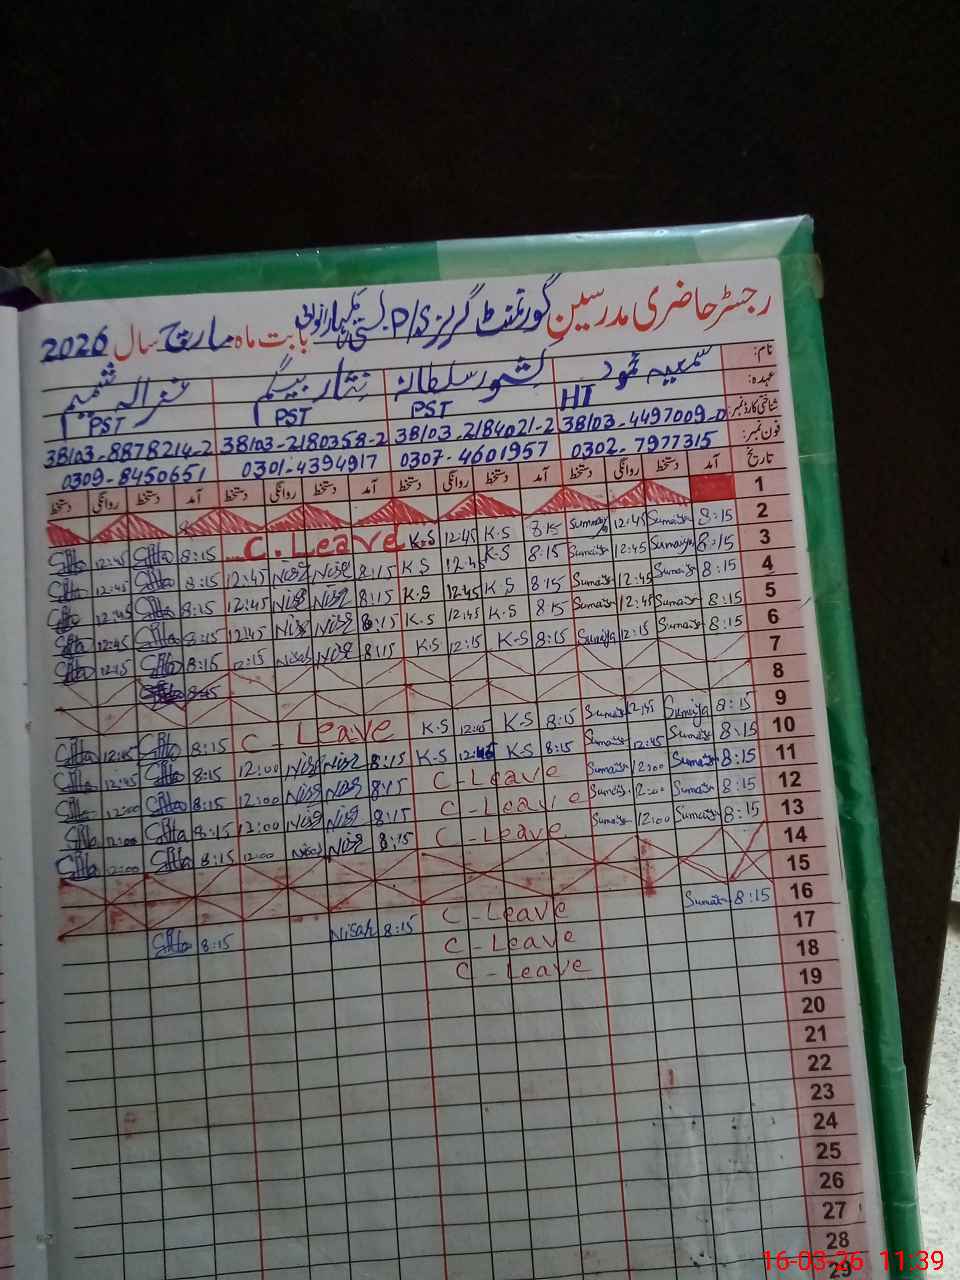 رجسٹر حاضری مدرسین گورنمنٹ گرلز P/S بستی بابت ماہ مارچ سال 2026
نام: سمعیہ محمود کشور سلطانہ نثار بیگم غزالہ شمیم
عہدہ: HT PST PST PST
شناختی کارڈ نمبر: 38103-4497009-0 38103-2184021-2 38103-2180358-2 38103-8878214-2
فون نمبر: 0302-7977315 0307-4601957 0301-4394917 0309-8450651
تاریخ آمد دستخط روانگی دستخط آمد دستخط روانگی دستخط آمد دستخط روانگی دستخط آمد دستخط روانگی دستخط
1
2 8:15 Sumaiya 12:45 Sumaiya 8:15 K.S 12:45 K.S C. Leave 8:15 12:45
3 8:15 Sumaiya 12:45 Sumaiya 8:15 K.S 12:45 K.S 8:15 Nisar Nisar 12:45 8:15 12:45
4 8:15 Sumaiya 12:45 Sumaiya 8:15 K.S 12:45 K.S 8:15 Nisar Nisar 12:45 8:15 12:45
5 8:15 Sumaiya 12:45 Sumaiya 8:15 K.S 12:45 K.S 8:15 Nisar Nisar 12:45 8:15 12:45
6 8:15 Sumaiya 12:15 Sumaiya 8:15 K.S 12:15 K.S 8:15 Nisar Nisar 12:15 8:15 12:15
7
8
9 8:15 Sumaiya 12:45 Sumaiya 8:15 K.S 12:45 K.S C - Leave 8:15 12:45
10 8:15 Sumaiya 12:45 Sumaiya 8:15 K.S K.S 8:15 Nisar Nisar 12:00 8:15 12:45
11 8:15 Sumaiya 12:00 Sumaiya C - Leave 8:15 Nisar Nisar 12:00 8:15 12:00
12 8:15 Sumaiya 12:00 Sumaiya C - Leave 8:15 Nisar Nisar 12:00 8:15 12:00
13 8:15 Sumaiya 12:00 Sumaiya C - Leave 8:15 Nisar Nisar 12:00 8:15 12:00
14
15
16 8:15 Sumaiya C - Leave 8:15 Nisar 8:15
17 C - Leave
18 C - Leave
19
20
21
22
23
24
25
26
27
28
29
16-03-26 11:39